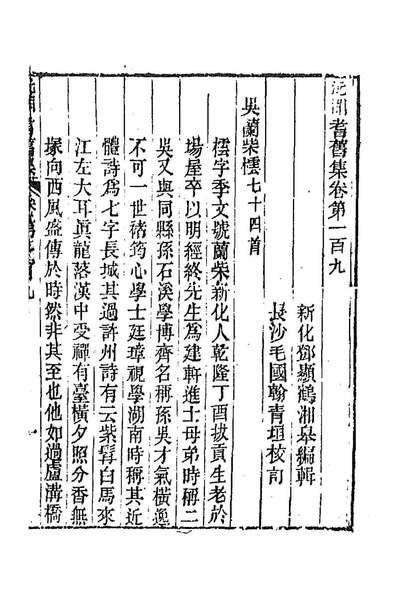 沅湘耆舊集卷第一百九
新化鄧顯鶴湘皋編輯
長沙毛國翰青垣校訂
吳蘭柴橒七十四首
橒字季文號蘭柴新化人乾隆丁酉拔貢生老於
場屋卒以明經終先生爲建軒進士母弟時稱二
吳又與同縣孫石溪學博齊名稱孫吳才氣橫逸
不可一世褚筠心學士廷璋視學湖南時稱其近
體詩爲七字長城其過許州詩有云紫髯白馬來
江左大耳眞龍落漢中受禪有臺橫夕照分香無
塚向西風盛傳於時然非其至也他如過盧溝橋